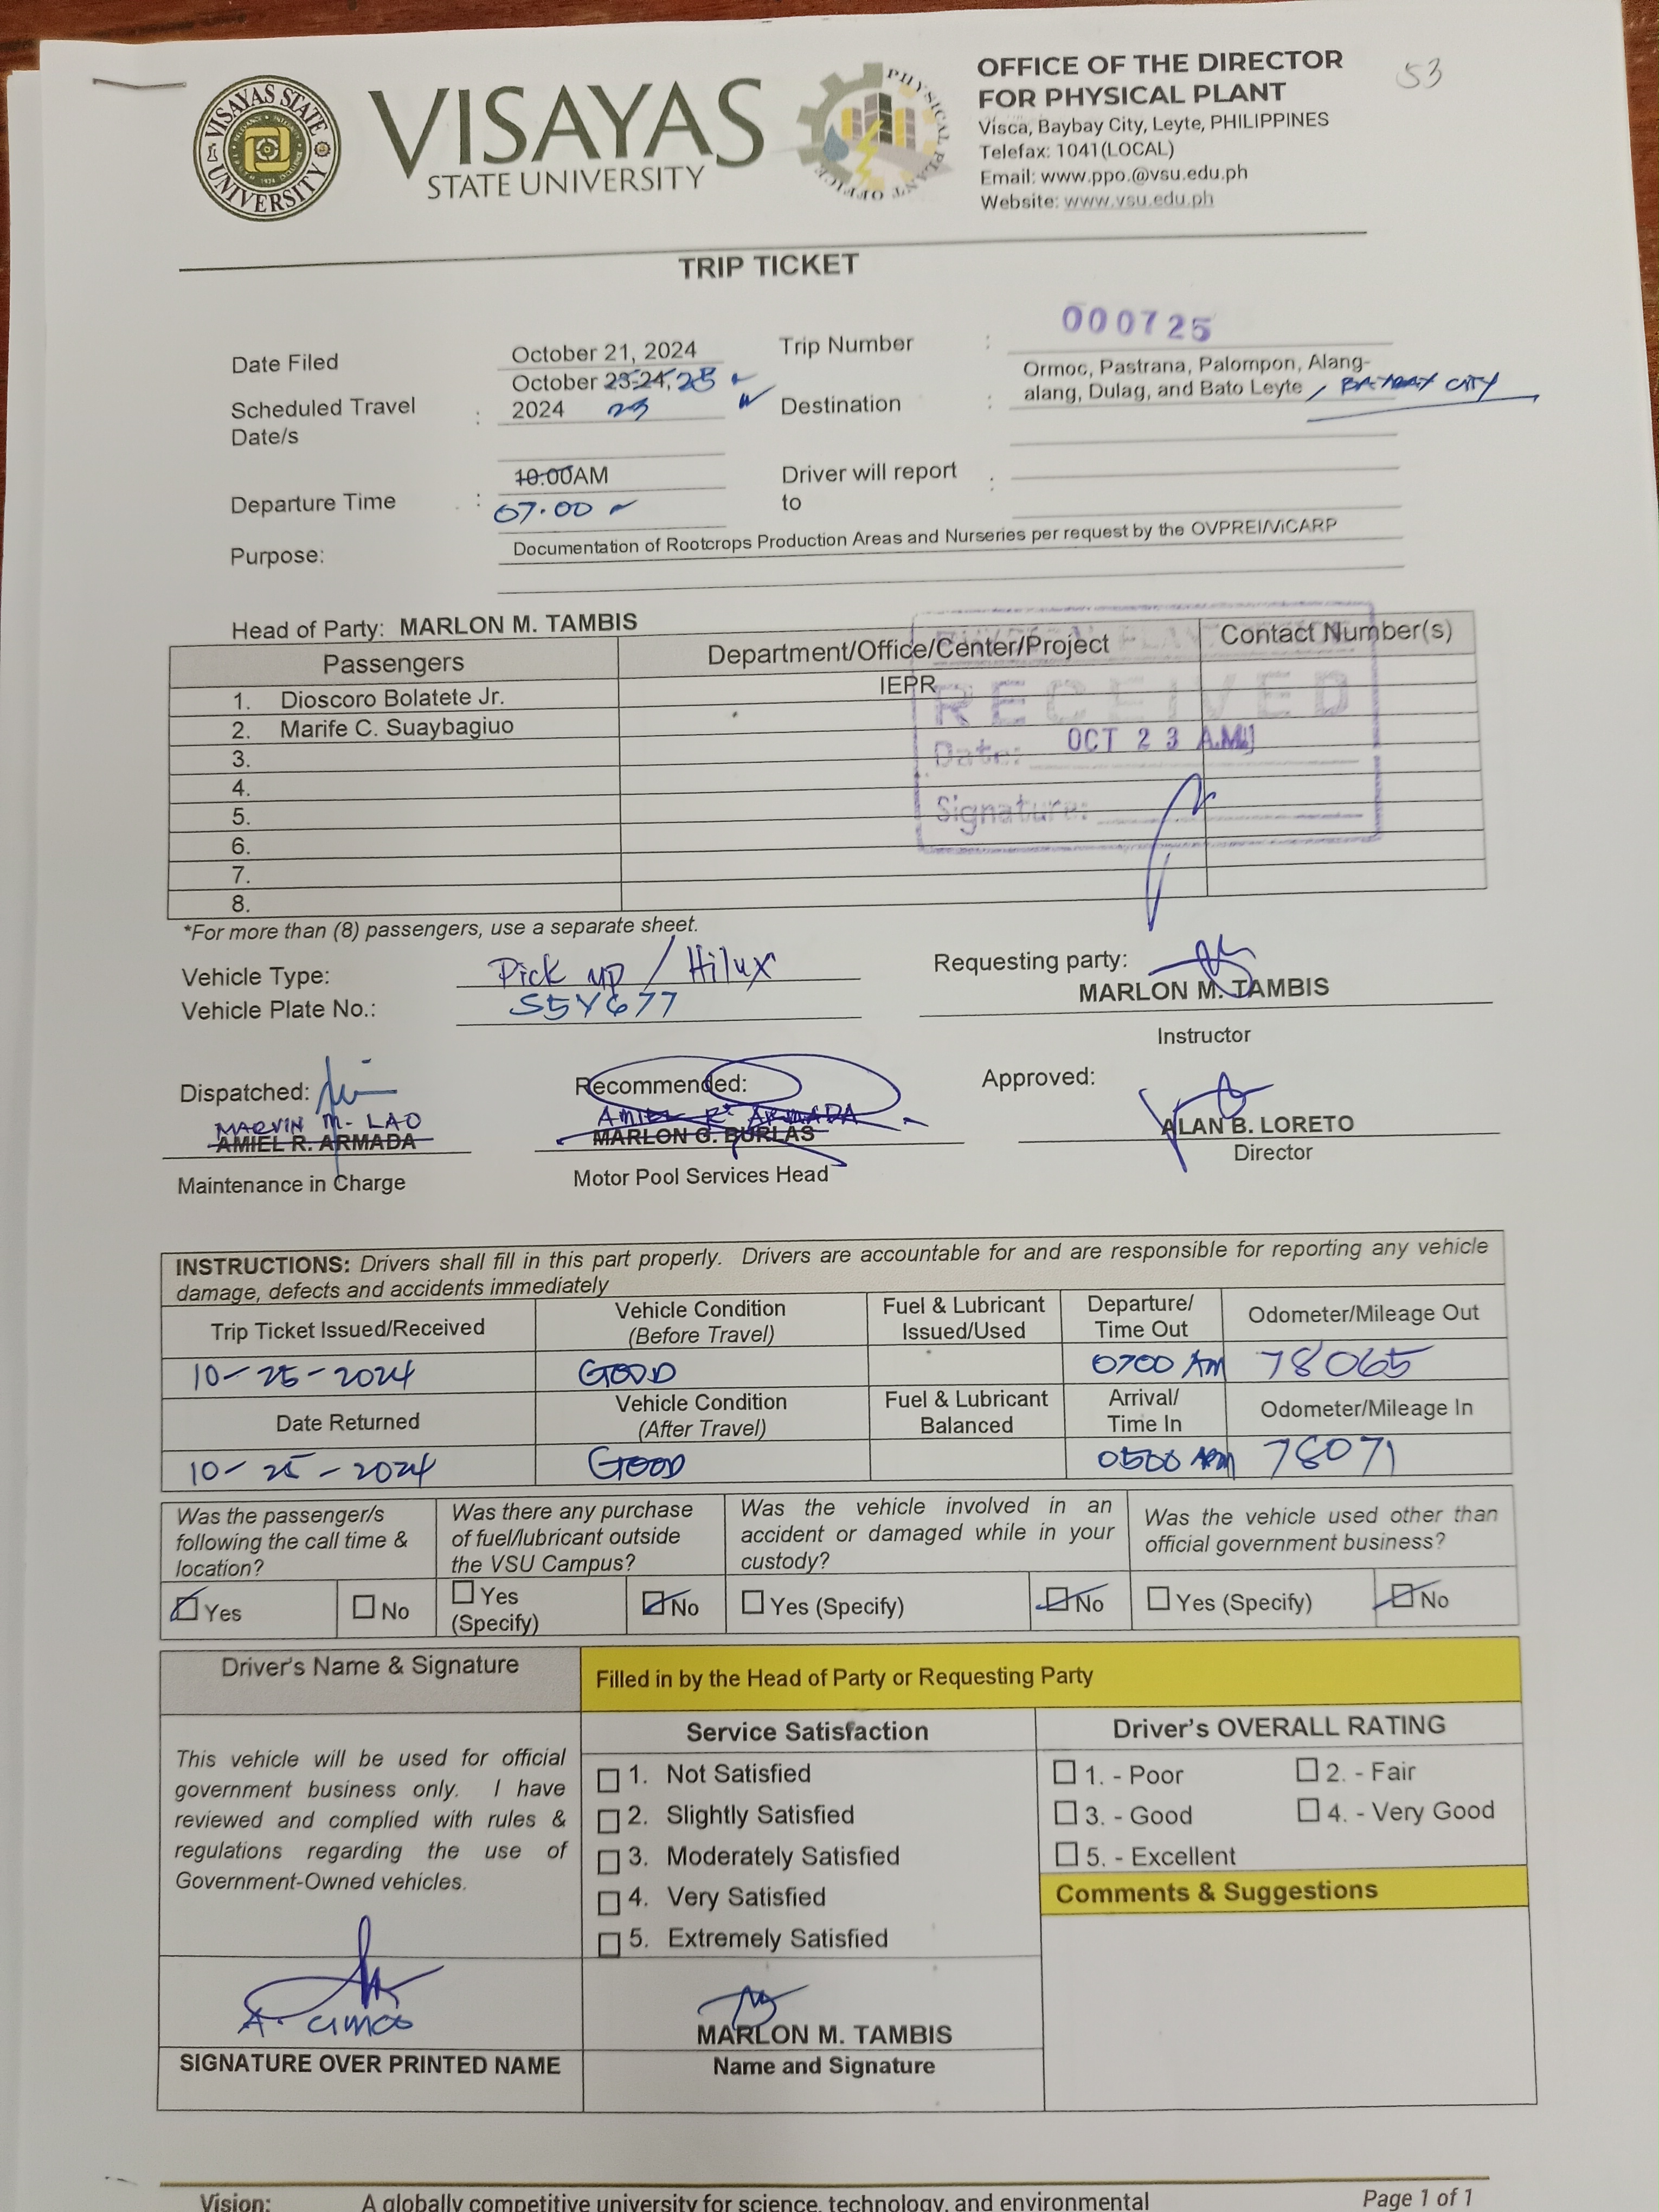 53
VISAYAS STATE UNIVERSITY
VISAYAS
STATE UNIVERSITY
PHYSICAL PLANT OFFICE
OFFICE OF THE DIRECTOR
FOR PHYSICAL PLANT
Visca, Baybay City, Leyte, PHILIPPINES
Telefax: 1041(LOCAL)
Email: www.ppo.@vsu.edu.ph
Website: www.vsu.edu.ph
TRIP TICKET
Date Filed October 21, 2024 Trip Number : 000725
Scheduled Travel Date/s : October 23-24, 25 2024 23
Destination : Ormoc, Pastrana, Palompon, Alang-
alang, Dulag, and Bato Leyte / BAYBAY CITY
Departure Time : 10:00AM 07.00
Driver will report to :
Purpose: Documentation of Rootcrops Production Areas and Nurseries per request by the OVPREI/ViCARP
Head of Party: MARLON M. TAMBIS
Passengers Department/Office/Center/Project Contact Number(s)
1. Dioscoro Bolatete Jr. IEPR
2. Marife C. Suaybagiuo
3.
4.
5.
6.
7.
8.
RECEIVED
Date: OCT 23 A.M.
Signature:
*For more than (8) passengers, use a separate sheet.
Vehicle Type: Pick up / Hilux
Vehicle Plate No.: S5Y677
Requesting party:
MARLON M. TAMBIS
Instructor
Dispatched: Recommended: Approved:
MARVIN M. LAO AMIEL R. ARMADA
AMIEL R. ARMADA MARLON G. BURLAS ALAN B. LORETO
Maintenance in Charge Motor Pool Services Head Director
INSTRUCTIONS: Drivers shall fill in this part properly. Drivers are accountable for and are responsible for reporting any vehicle
damage, defects and accidents immediately
Trip Ticket Issued/Received Vehicle Condition (Before Travel) Fuel & Lubricant Issued/Used Departure/ Time Out Odometer/Mileage Out
10-25-2024 GOOD 0700 AM 78065
Date Returned Vehicle Condition (After Travel) Fuel & Lubricant Balanced Arrival/ Time In Odometer/Mileage In
10-25-2024 GOOD 78071
Was the passenger/s following the call time & location?
Was there any purchase of fuel/lubricant outside the VSU Campus?
Was the vehicle involved in an accident or damaged while in your custody?
Was the vehicle used other than official government business?
Yes No Yes (Specify) No Yes (Specify) No Yes (Specify) No
Driver's Name & Signature Filled in by the Head of Party or Requesting Party
This vehicle will be used for official
government business only. I have
reviewed and complied with rules &
regulations regarding the use of
Government-Owned vehicles.
Service Satisfaction
1. Not Satisfied
2. Slightly Satisfied
3. Moderately Satisfied
4. Very Satisfied
5. Extremely Satisfied
Driver's OVERALL RATING
1. - Poor 2. - Fair
3. - Good 4. - Very Good
5. - Excellent
Comments & Suggestions
MARLON M. TAMBIS
SIGNATURE OVER PRINTED NAME Name and Signature
Vision: A globally competitive university for science, technology, and environmental
Page 1 of 1